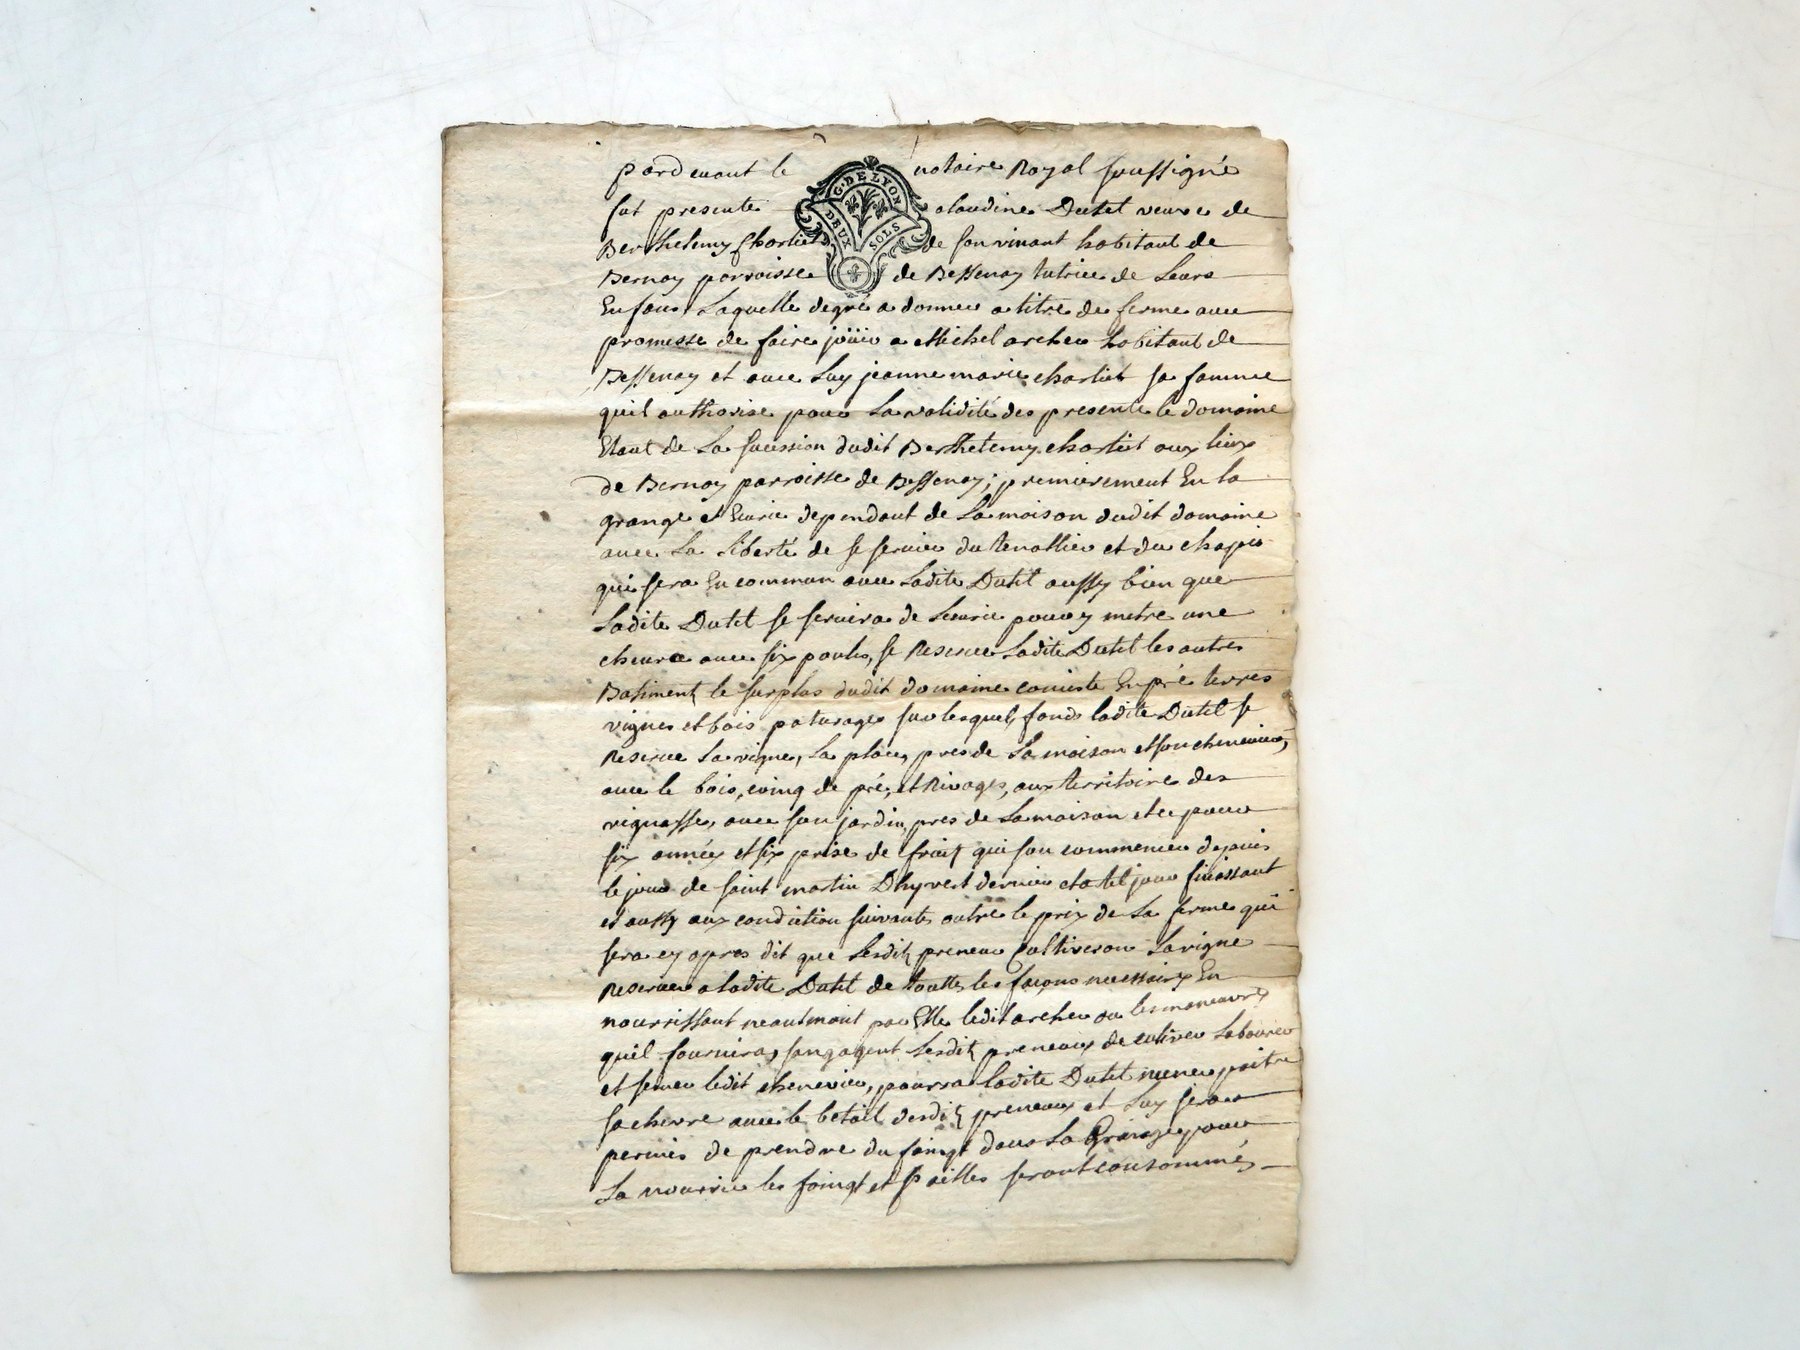 pardevant le notaire Royal soussigné
fut presente claudine Dutel veuve de
Berthelemy charliet de son vivant habitant de
Bernay parroisse de Bessenay tutrice de Leurs
Enfans Laquelle degré a donnée a titre de ferme avec
promesse de faire joüir a Michel archer habitant de
Bessenay et avec Luy jeanne marie charliet sa famme
quil authorise pour La validité des presente le domaine
Etant de La sucession dudit Berthelemy charliet aux lieux
de Bernay parroisse de Bessenay; premierement En la
grange et Ecurie dependant de La maison dudit domaine
avec La liberté de se servir du tenallier et du chapis
qui sera En commun avec Ladite Dutel aussy bien que
Ladite Dutel se servira de Lecurie pour y metre une
chevre avec six poules, se Reserve Ladite Dutel les autres
Batiments le surplus dudit domaine consiste En pré terres
vignes et bois paturages sur lesquels fonds ladite Dutel se
Reserve La vigne, La place, pres de La maison et son chenevier,
avec le bois, coing de pré, et Rivages, aux territoire des
vignasse, avec son jardin, pres de La maison et ce pour
six années et six prise de fruits qui son commencée depuis
le jour de saint martin Dhyvert dernier et a tel jour finissant
et aussy aux condiction suivantes outre le prix de La ferme qui
sera cy apres dit que Lesdits preneur Cultiveron La vigne
Reservée a ladite Dutel de toutte les façons necessaires En
nourrissant neantmont par Elle ledit archer ou les maneuvres
quil fournira, sangagent Lesdits preneurs de cultiver Labourer
et semer ledit chenevier, pourra ladite Dutel mener paitre
sa chevre avec le betail desdits preneurs et Luy sera
permis de prendre du foingt dans La Grange pour
La nourrir les foingt et pailles seront consommés
G. DE LYON
DEUX SOLS